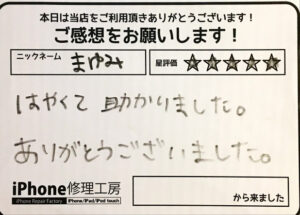 本日は当店をご利用頂きありがとうございます！
ご感想をお願いします！
ニックネーム まゆみ 星評価 ★★★★★
はやくて助かりました。
ありがとうございました。
iPhone修理工房
iPhone Repair Factory iPhone/iPad/iPod touch
から来ました